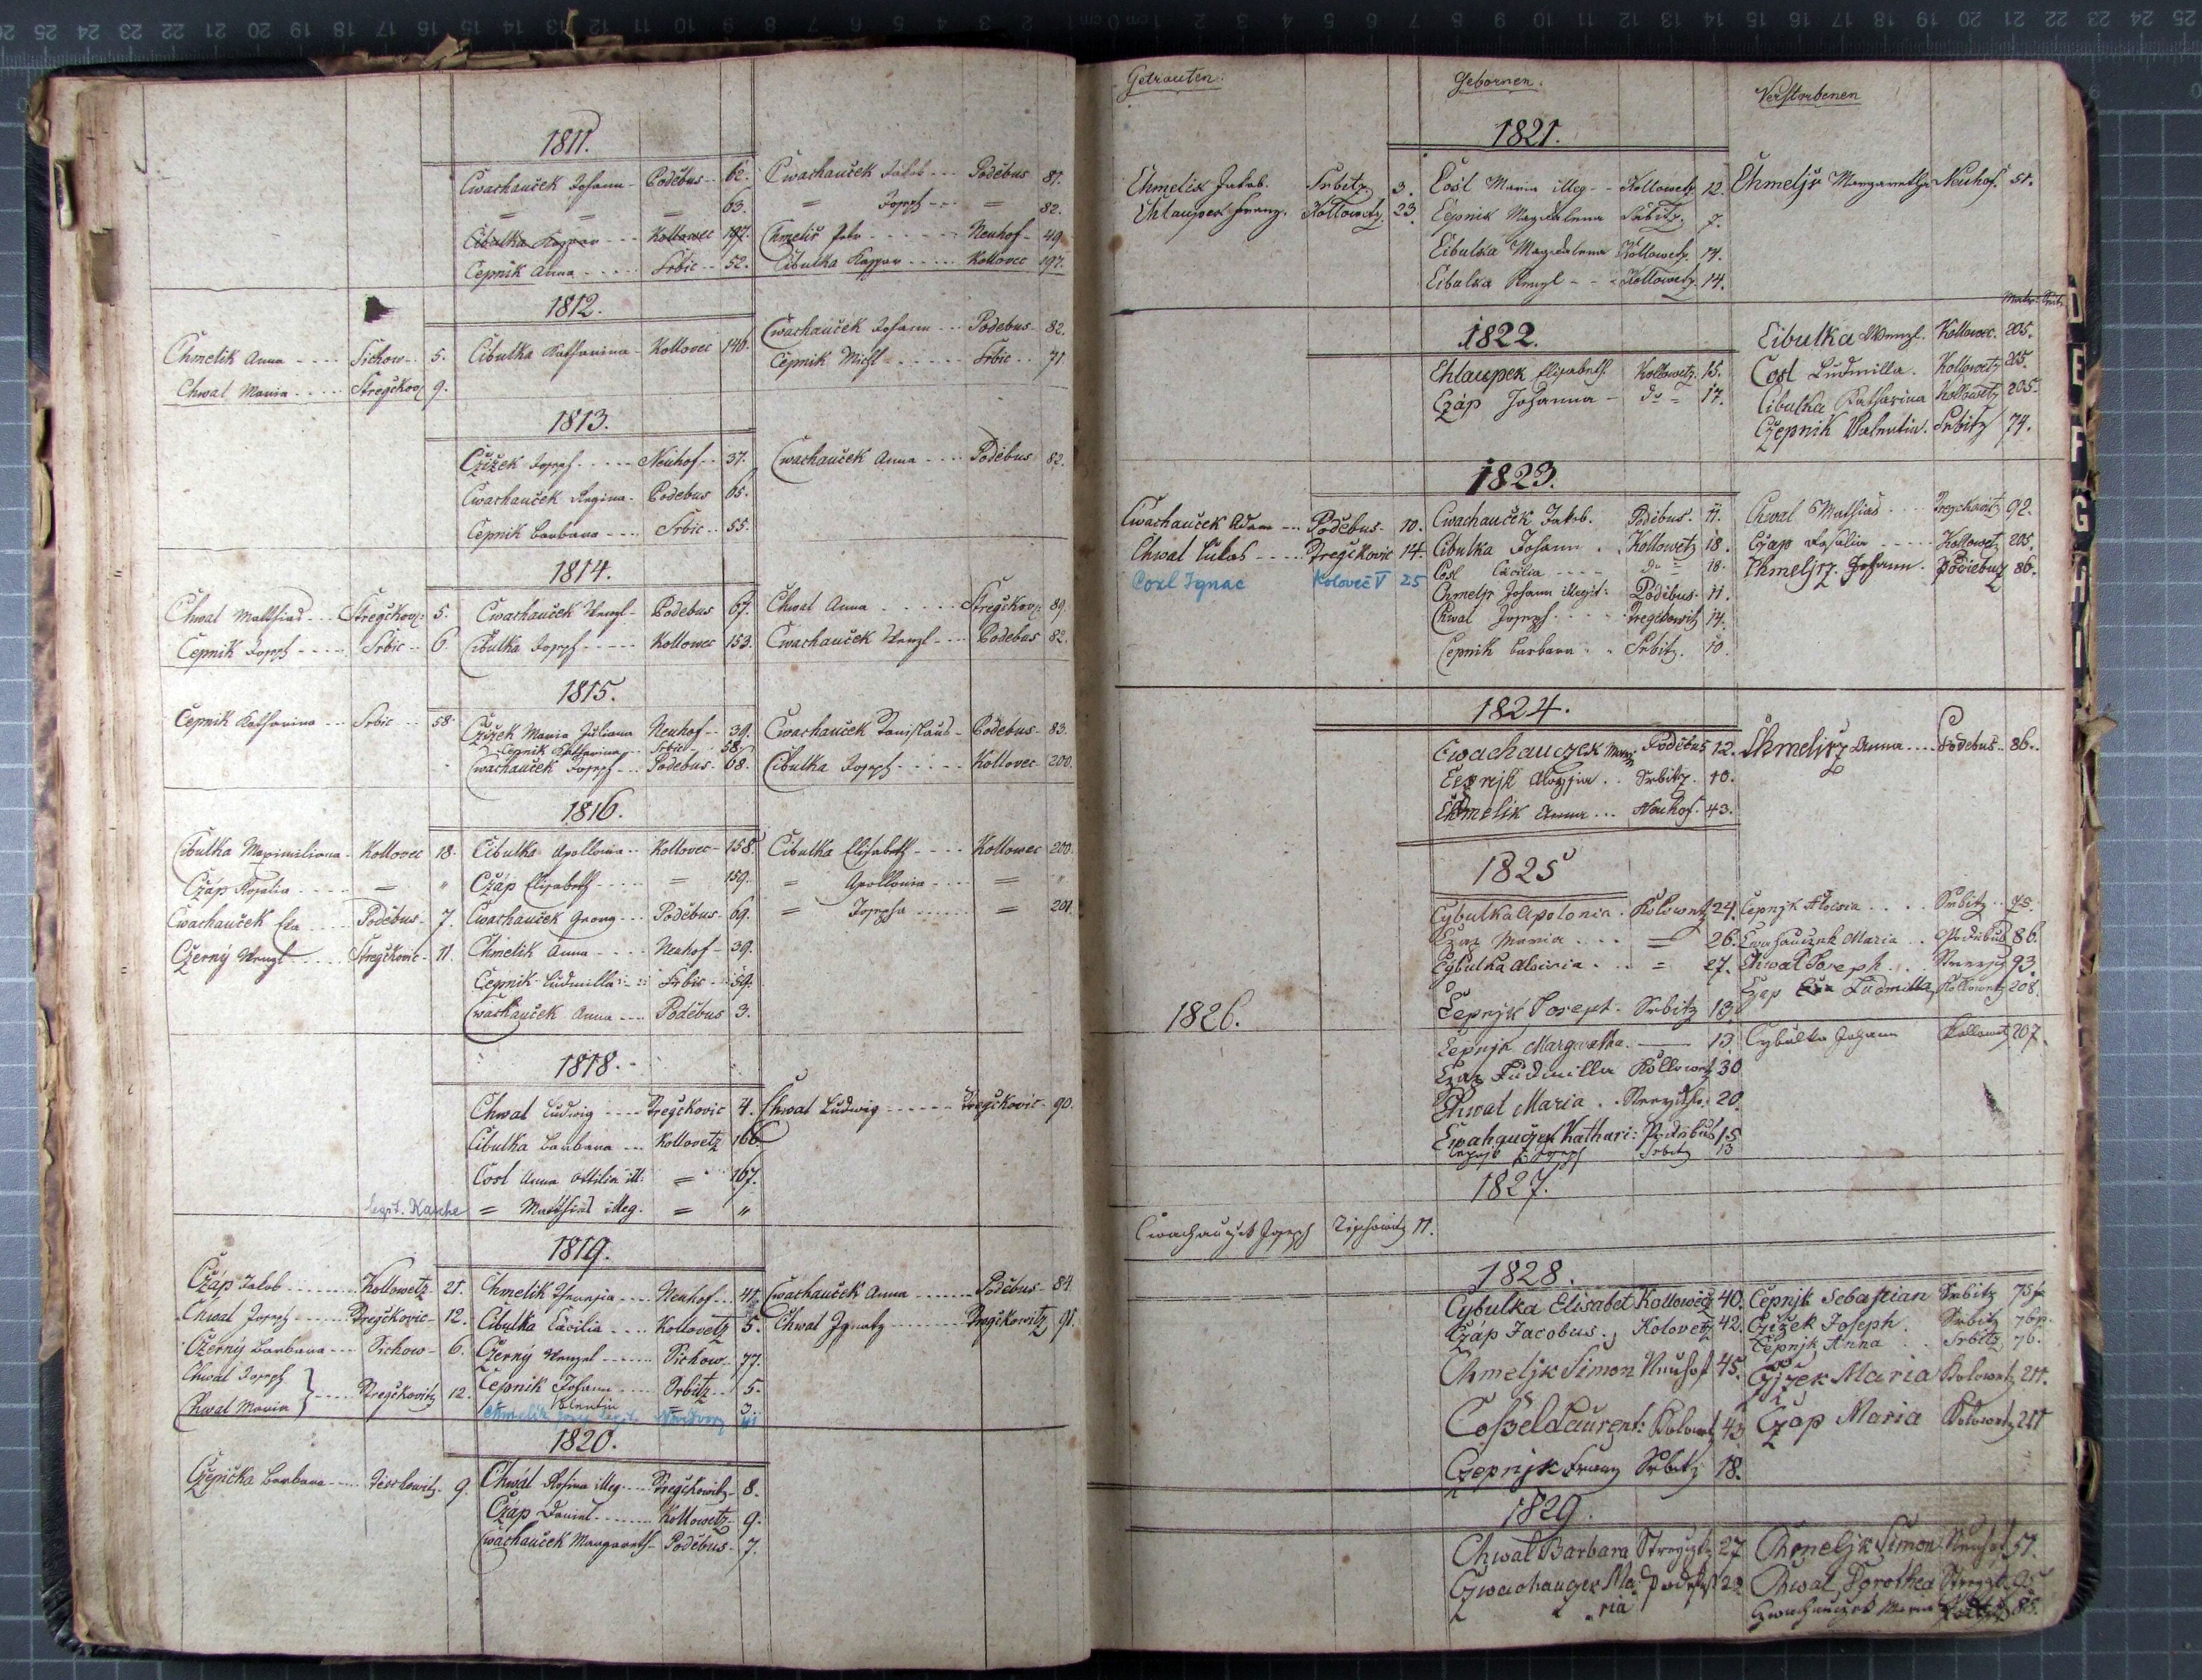 1811.
Cwachauček Johann - Poděbus - 62. Cwachauček Jakob - - - Poděbus 81.
= = = 63. = Joseph - - - = 82.
Cibulka Kaspar - - - Kottowec 197. Chmelik Peter - - - - Neuhof - 49.
Čepnik Anna - - - - - Srbic - - 52. Cibulka Kaspar - - - - - Kottovec 197.
1812.
Chmelik Anna - - - - Sichow - - 5. Cibulka Katharina - Kottovec 146. Cwachauček Johann - - - Podebus - 82.
Chwat Maria - - - - Stregčkov 9. Čepnik Michl - - - - - Srbic - - 71.
1813.
Cžižek Joseph - - - - - Neuhof - - 37. Cwachauček Anna - - - - Poděbus 82.
Cwachauček Regina - Podebus 65.
Čepnik Barbara - - - - Srbic - - 55.
1814.
Chwat Matthias - - - Stregčkov: 5. Cwachauček Wenzl - Podebus 67. Chwat Anna - - - - - Stregčkov: 89.
Čepnik Joseph - - - - Srbic - - 6. Cibulka Joseph - - - - - Kottowec 153. Cwachauček Wenzl - - - Podebus 82.
1815.
Čepnik Katharina - - - Srbic - - 58. Cžižek Maria Juliana Neuhof - - 39. Cwachauček Stanislaus - Podebus - 83.
Čepnik Katharina - - Srbic - 58.
Cwachauček Joseph - - - Podebus - 68. Cibulka Joseph - - - - - Kottovec - 200.
1816.
Cibulka Maximiliana - Kottovec 18. Cibulka Apollonia - - Kottovec - 158. Cibulka Elisabeth - - - - Kottowec 200.
Cžáp Rosalia - - - - - = " Cžáp Elisabeth - - - - - = 159. = Apollonia - - - - = "
Cwachauček Eva - - - - Poděbus - 7. Cwachauček Georg - - - Poděbus - 69. = Josepha - - - - - = 201.
Cžerný Wenzl - - - - - Stregčkovic - 11. Chmelik Anna - - - - Neuhof - 39.
Čepnik Ludmilla - - - Srbic - - 59.
Cwachauček Anna - - - - Poděbus 3.
1818.
Chwat Ludwig - - - - Stregčkovic 4. Chwat Ludwig - - - - - - Stregčkovic - 90.
Cibulka Barbara - - - Kottovetz 166.
Cost Anna Ottilia ill: = 167.
legit. Kasche = Matthias illeg. = "
1819.
Cžáp Jakob - - - - - - Kottowetz - 21. Chmelik Theresia - - - - Neuhof - - 41. Cwachauček Anna - - - - - Poděbus - 84.
Chwat Joseph - - - - - Stregčkovic - 12. Cibulka Cäcilia - - - - Kottovetz 5. Chwat Ignatz - - - - - - Stregčkowitz 91.
Cžerný Barbara - - - Sichow - 6. Cžerný Wenzel - - - - - - Sichow - - 77.
Chwat Joseph
Chwat Maria - - - - - Stregčkovitz 12. Čepnik Johann - - - - - Srbitz - - 5.
Valentin = 3.
1820.
Cžepička Barbara - - - - 9. Chwát Rosina illeg. - - - Stregčkowitz - 8.
Cžáp Daniel - - - - - - - Kottowetz - 9.
Cwachauček Margareth - Poděbus - 7.
Getrauten: Gebornen. Verstorbenen
1821.
Chmelik Jakob. Srbitz 3. Cost Maria illeg - - Kottowetz 12. Chmeljk Margaretha Neuhof. 51.
Chlaupek Franz. Kottowetz. 23. Čepnik Magdalena Srbitz. 7.
Cibulka Magdalena Kottowetz. 14.
Cibulka Wenzl - - - Kottowetz. 14.
1822. Cibulka Wenzl. Kottowec. 205.
Chlaupek Elisabeth Kottowetz. 15. Cost Ludmilla. Kottowetz 205.
Czáp Johanna - do = 17. Cibulka Katharina Kottowetz 205.
Cžepnik Valentin. Srbitz 74.
1823.
Cwachauček Adam - - - Poděbus - 10. Cwachauček Jakob. Podibus. 11. Chwat Mathias - - - 92.
Chwat Lukas - - - - Stregčkovic 14. Cibulka Johann . Kottowetz 18. Czap Rosalia - - - - - Kottowetz 205.
Coxl Ignac Koloveč V 25 Cosl Cäcilia - - - - do = 18. Chmeljrz Johann. Podiebuz 86.
Chmeljr Johann illegit: Podibus - 11.
Chwat Joseph - - - - 14.
Čepnik Barbara - - Srbitz. 10.
1824.
Cwachauczek Poděbus 12. Chmelirz Anna - - - - Podebus - 86.
Čepnjk Aloysia . . Srbitz. 10.
Chmelik Anna . . . Neuhof. 43.
1825
Cybulka Apolonia . Kolowetz 24. Cepnjk Aloisia . . . . Srbitz . . 75.
Czap Maria . . . . = 26. Cwachauczek Maria . . Podiebus 86.
Cybulka Aloisia . . . = 27. Chwat Joseph . . 93.
Čepnjk Joseph - Srbitz 13. Czap Ludmilla, Kottowetz 208.
1826.
Čepnjk Margaretha. — 13. Cybulka Johann Kollowetz 207.
Czap Ludmilla Kollowetz 30.
Chwat Maria . . 20.
Cwahauczek Kathari: Podiebus 15
Cepnjk Joseph Srbitz 13
1827.
Cwachauczek Joseph 11.
1828.
Cybulka Elisabet Kottowecz 40. Čepnjk Sebastian Srbitz 75
Czáp Jacobus . , Kolovetz 42. Čžižek Joseph . Srbitz 76
Čepnjk Anna . . Srbitz 76.
Chmeljk Simon Neuhof 45. Czizek Maria Kolowetz 211.
Coßel Laurent: Kolowetz 43. Czáp Maria Kolowetz 211
Czepnjk Franz Srbitz 18.
1829.
Chwat Barbara 27 Chmeljk Simon Neuhof 57.
Czwachauczek Ma: 20 Chwat Dorothea 95
" " ria Czwachauczek Maria 88.